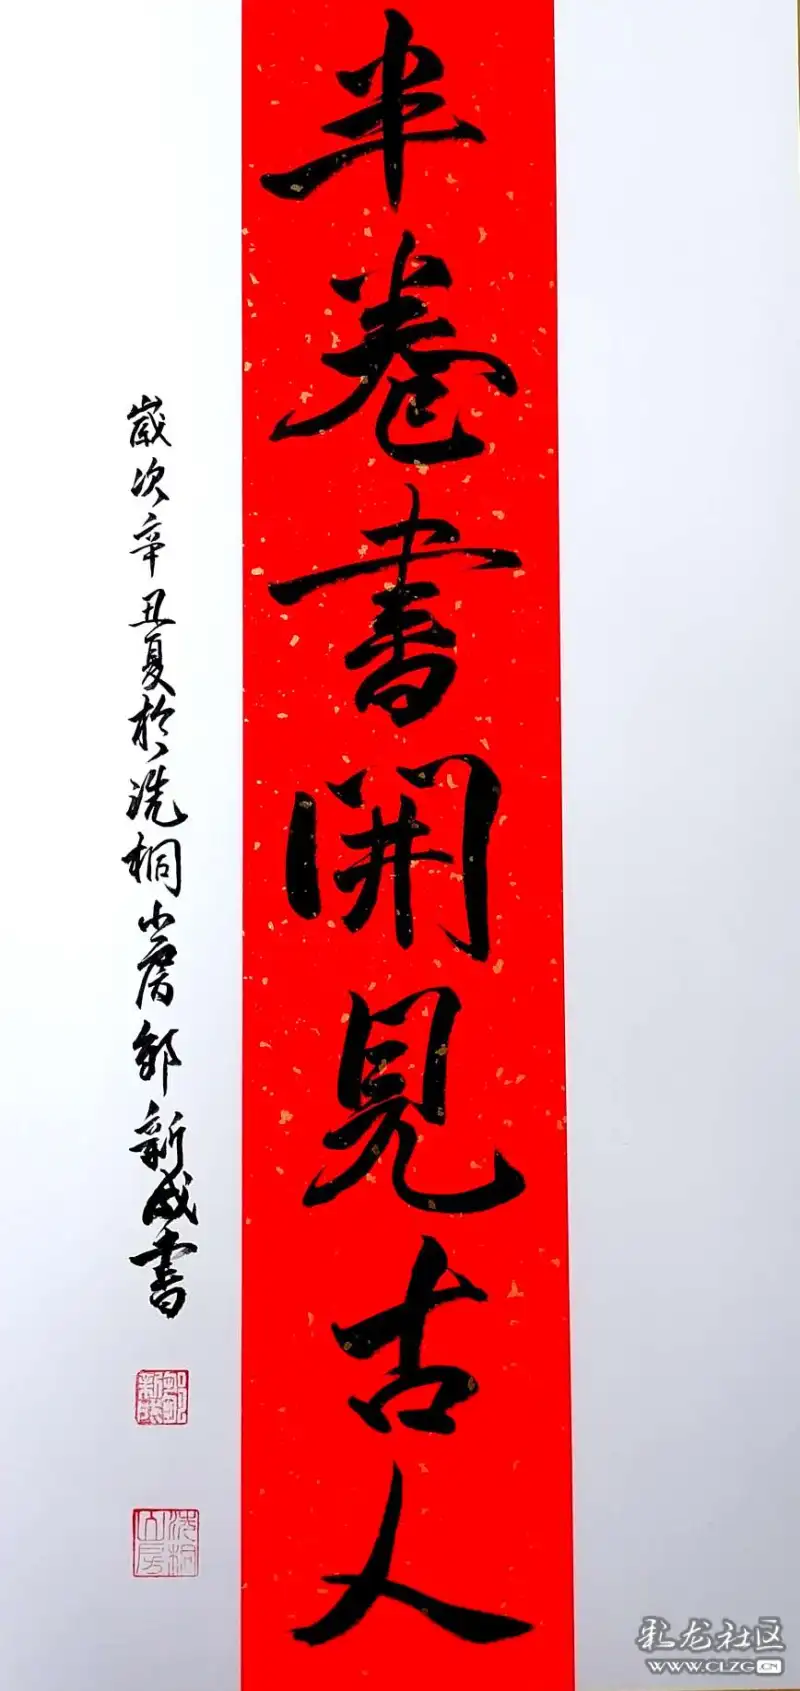 半卷書開見古人
歲次辛丑夏於洗桐小房鄒新成書
彩龙社区
WWW.CLZG.CN